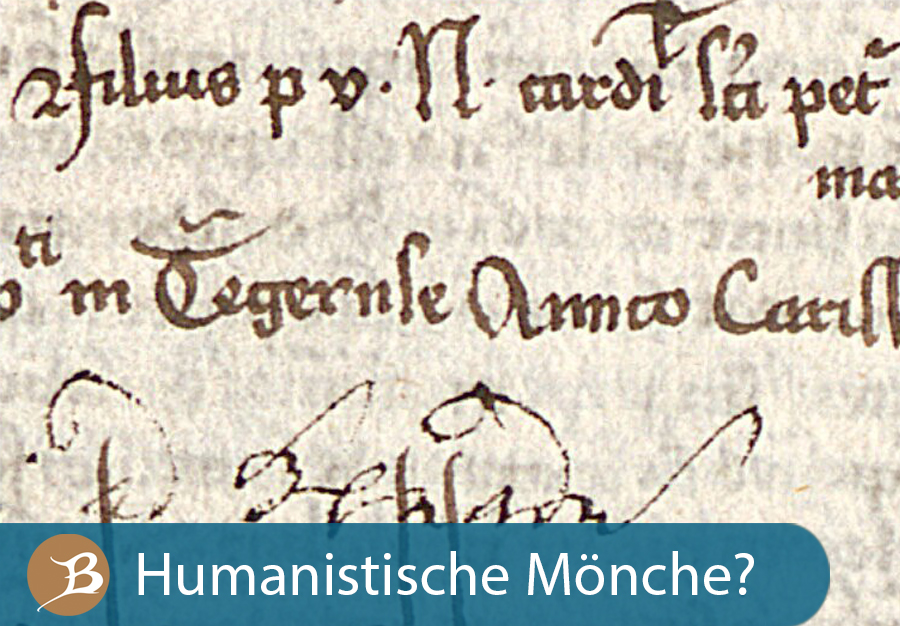 filius p v. N. cardi sci pet
ma
ti
in Tegernse Amico Cariss
B Humanistische Mönche?